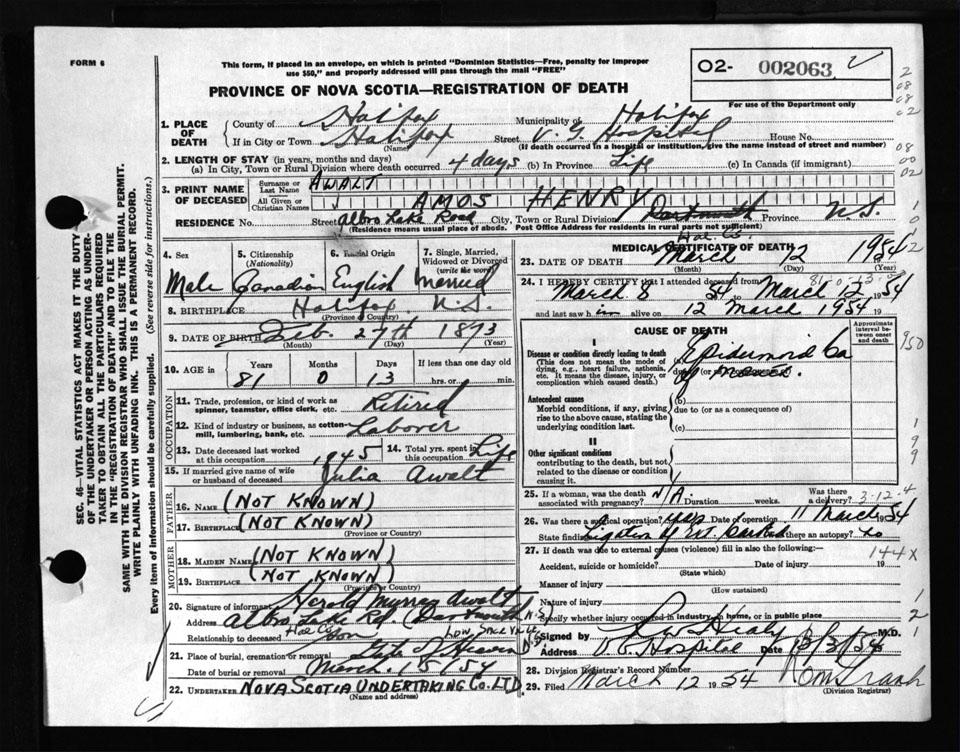 FORM 6
This form, if placed in an envelope, on which is printed "Dominion Statistics—Free, penalty for improper
use $50," and properly addressed will pass through the mail "FREE"
O2- 002063
For use of the Department only
PROVINCE OF NOVA SCOTIA—REGISTRATION OF DEATH
1. PLACE OF DEATH
County of Halifax Municipality of Halifax
If in City or Town Halifax Street V. G. Hospital House No.
(Name) (If death occurred in a hospital or institution, give the name instead of street and number)
2. LENGTH OF STAY (in years, months and days)
(a) In City, Town or Rural Division where death occurred 4 days (b) In Province Life (c) In Canada (if immigrant)
3. PRINT NAME OF DECEASED
Surname or Last Name AWALT
All Given or Christian Names AMOS HENRY
RESIDENCE No. Street Albro Lake Road City, Town or Rural Division Dartmouth Province N.S.
(Residence means usual place of abode. Post Office Address for residents in rural parts not sufficient)
Hal. Co.
4. Sex
Male
5. Citizenship
(Nationality)
Canadian
6. Racial Origin
English
7. Single, Married, Widowed or Divorced
(write the word)
Married
8. BIRTHPLACE Halifax N.S.
(Province or Country)
9. DATE OF BIRTH Feb. 27th 1873
(Month) (Day) (Year)
10. AGE IN
Years 81
Months 0
Days 13
If less than one day old
hrs. or min.
OCCUPATION
11. Trade, profession, or kind of work as
spinner, teamster, office clerk, etc. Retired
12. Kind of industry or business, as cotton-
mill, lumbering, bank, etc. Laborer
13. Date deceased last worked
at this occupation 1945
14. Total yrs. spent in
this occupation Life
15. If married give name of wife
or husband of deceased Julia Awalt
FATHER
16. NAME (NOT KNOWN)
17. BIRTHPLACE (NOT KNOWN)
(Province or Country)
MOTHER
18. MAIDEN NAME (NOT KNOWN)
19. BIRTHPLACE (NOT KNOWN)
(Province or Country)
20. Signature of informant Herold Murray Awalt
Address Albro Lake Rd. Dartmouth N.S.
Hal Co.
Relationship to deceased Son
21. Place of burial, cremation or removal Gate of Heaven
Low Sackville
N.S.
Date of burial or removal March. 15/54
22. UNDERTAKER NOVA SCOTIA UNDERTAKING CO. LTD
(Name and address)
MEDICAL CERTIFICATE OF DEATH
23. DATE OF DEATH March 12 1954
(Month) (Day) (Year)
24. I HEREBY CERTIFY that I attended deceased from
March 8 54 to March 12 1954
and last saw him alive on 12 March 1954 19
CAUSE OF DEATH
Approximate interval between onset and death
I
Disease or condition directly leading to death
(This does not mean the mode of
dying, e.g., heart failure, asthenia,
etc. It means the disease, injury, or
complication which caused death.)
(a) Epidermoid Ca
due to (or as a consequence of)
Antecedent causes
Morbid conditions, if any, giving
rise to the above cause, stating the
underlying condition last.
(b)
due to (or as a consequence of)
(c)
II
Other significant conditions
contributing to the death, but not
related to the disease or condition
causing it.
25. If a woman, was the death
associated with pregnancy? N/A. Duration weeks. Was there
a delivery? 3-12-4
26. Was there a surgical operation? yes Date of operation 11 March 1954
State findings Ligation of Ext. Carotid Was there an autopsy? No
27. If death was due to external causes (violence) fill in also the following:—
144X
Accident, suicide or homicide? Date of injury 19
(State which)
Manner of injury
(How sustained)
Nature of injury
Specify whether injury occurred in industry, in home, or in public place
Signed by Healy M.D.
Address V.G. Hospital Date 13/3/54
28. Division Registrar's Record Number
29. Filed March 12 1954
(Division Registrar)
SEC. 46—VITAL STATISTICS ACT MAKES IT THE DUTY
OF THE UNDERTAKER OR PERSON ACTING AS UNDER-
TAKER TO OBTAIN ALL THE PARTICULARS REQUIRED
IN THE "REGISTRATION OF DEATH" AND TO FILE THE
SAME WITH THE DIVISION REGISTRAR WHO SHALL ISSUE THE BURIAL PERMIT.
WRITE PLAINLY WITH UNFADING INK. THIS IS A PERMANENT RECORD.
Every item of information should be carefully supplied. (See reverse side for instructions.)